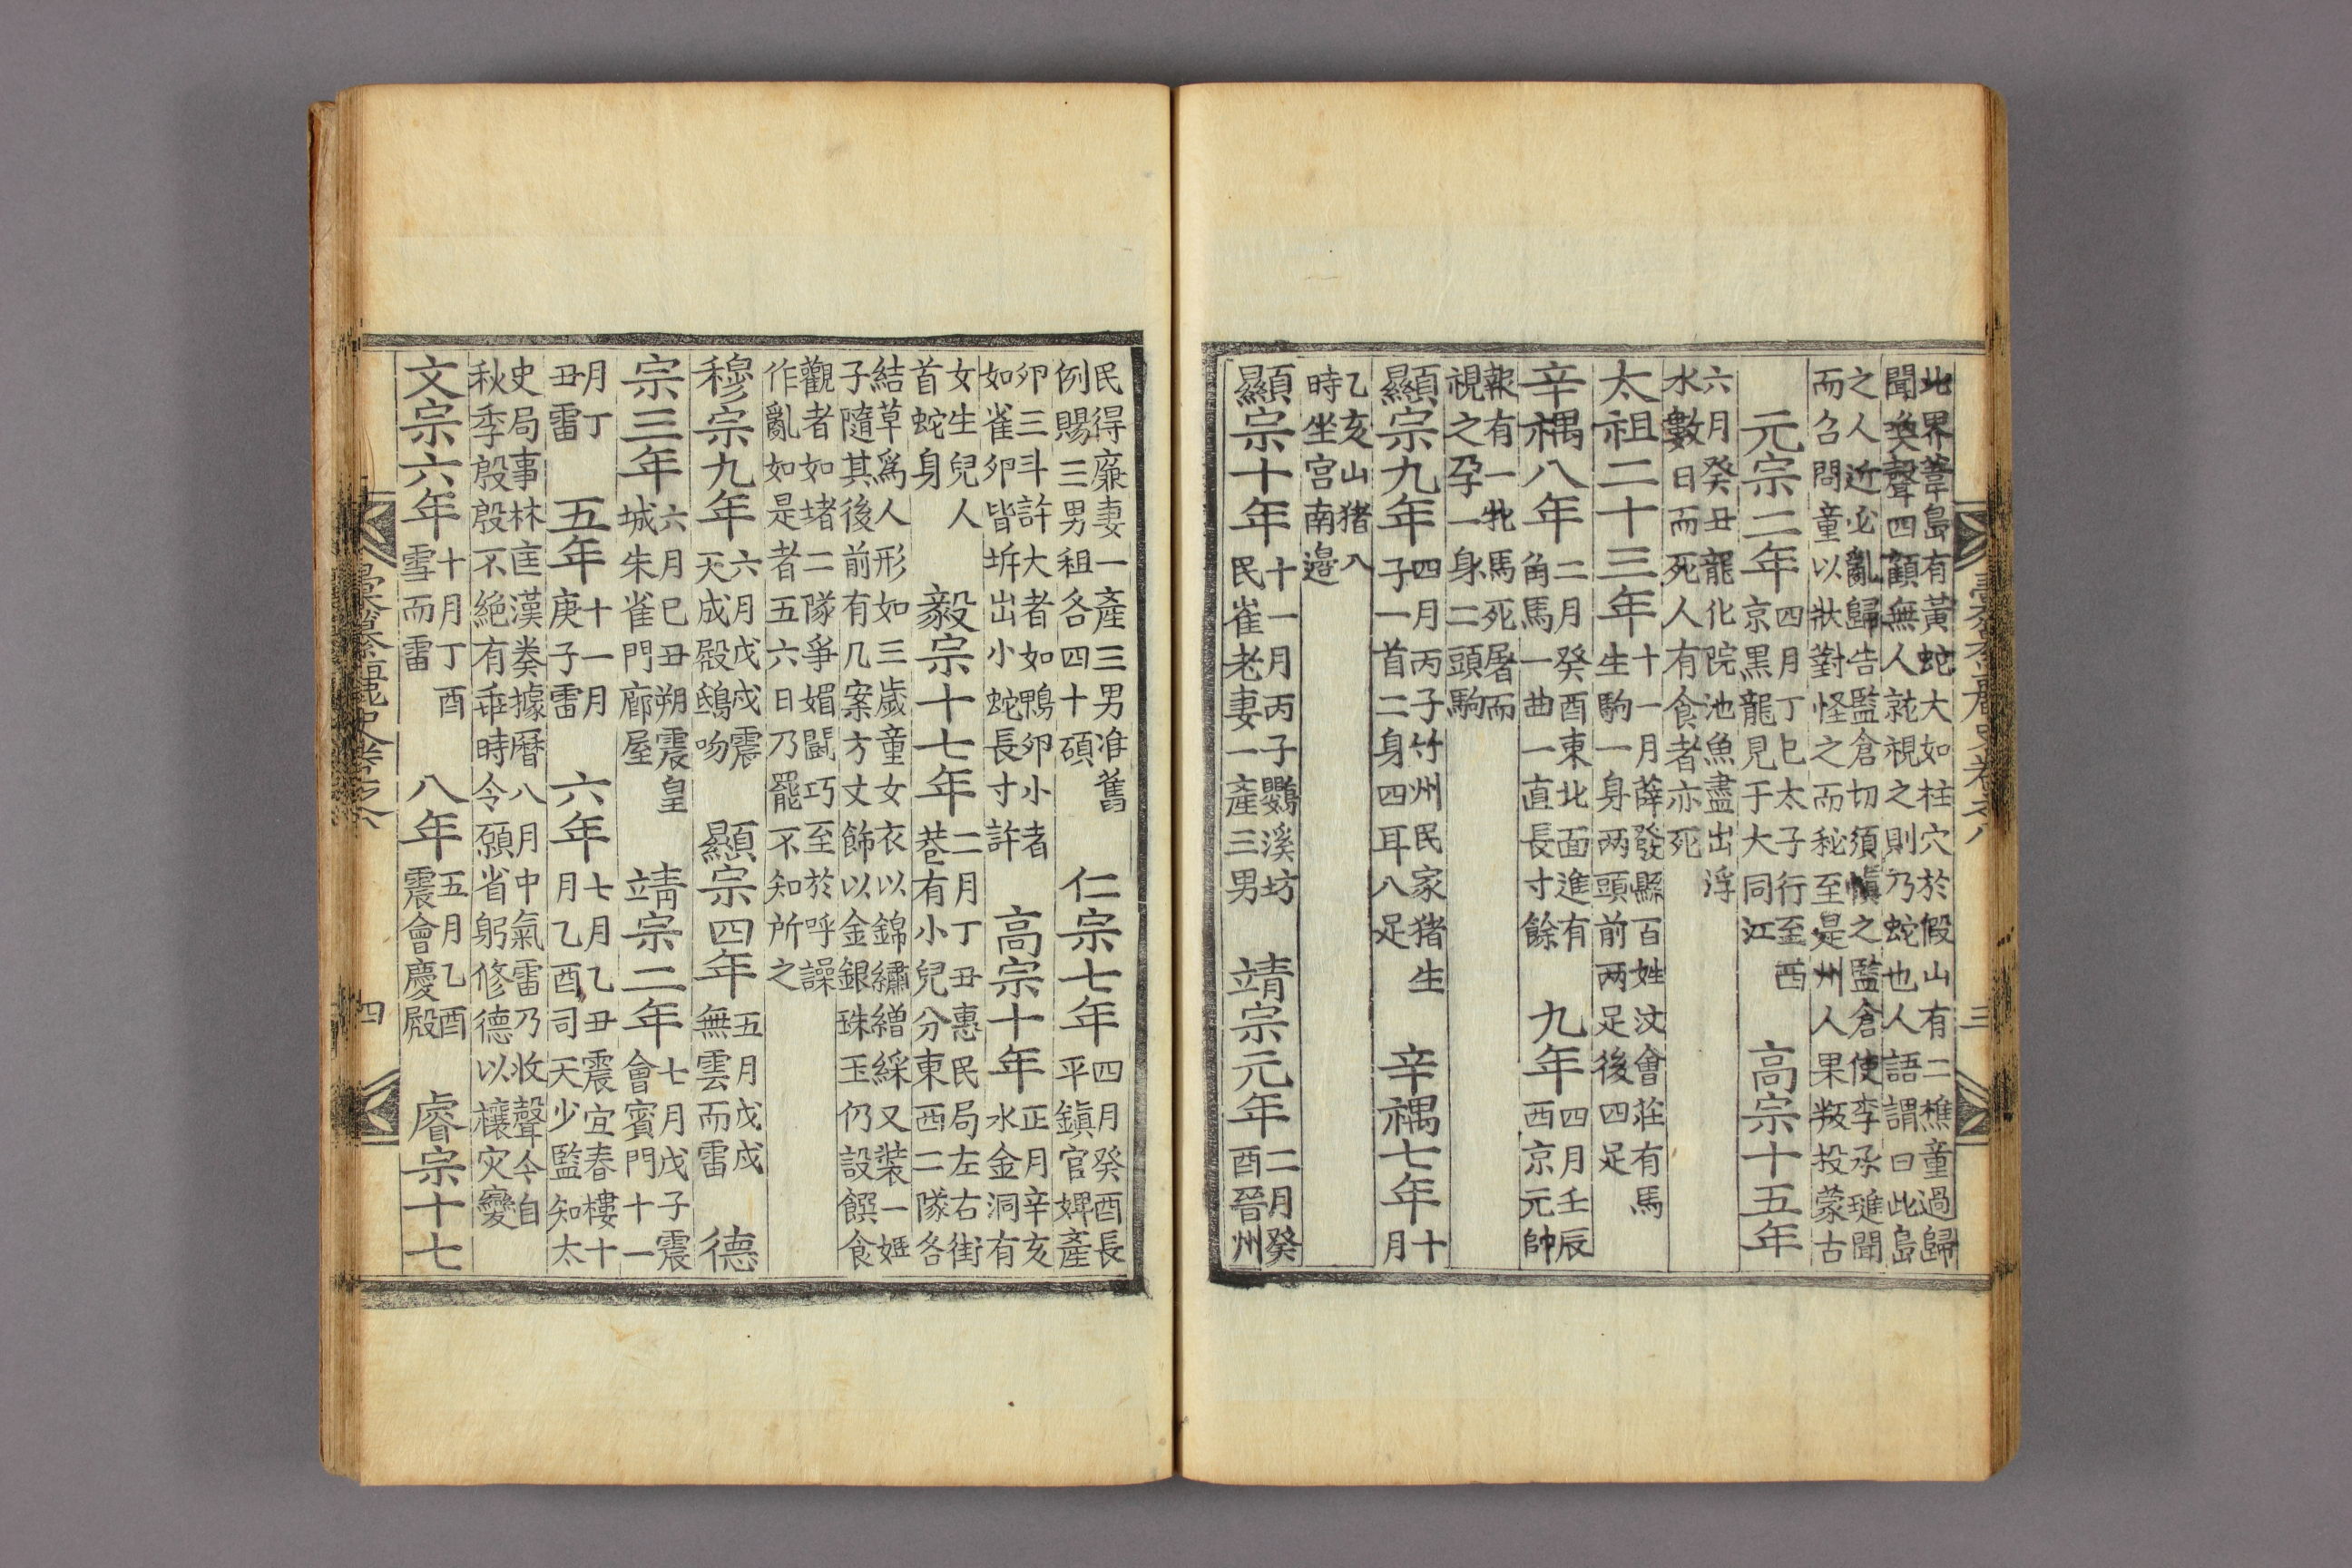 北界葦島有黃蛇大如柱穴於假山有二樵童過歸
聞喚聲四顧無人就視之則乃蛇也人語謂曰此島
之人近必亂歸告監倉切須愼之監倉使李承璡聞
而召問童以狀對怪之而秘至是州人果叛投蒙古
元宗二年四月丁巳太子行至西京黑龍見于大同江 高宗十五年
六月癸丑龍化院池魚盡出浮
水數日而死人有食者亦死
太祖二十三年十一月薛發縣百姓汶會莊有馬生駒一身两頭前两足後四足
辛禑八年二月癸酉東北面進有角馬一曲一直長寸餘 九年四月壬辰西京元帥
報有一牝馬死屠而
視之孕一身二頭駒
顯宗九年四月丙子竹州民家猪生子一首二身四耳八足 辛禑七年十月
乙亥山猪入
時坐宮南邉
顯宗十年十一月丙子鸚溪坊民雀老妻一產三男 靖宗元年二月癸酉晉州
三
民得廉妻一產三男准舊例賜三男租各四十碩 仁宗七年四月癸酉長平鎭官婢產
卵三斗許大者如鴨卵小者如雀卵皆坼出小蛇長寸許 高宗十年正月辛亥水金洞有
女生兒人首蛇身 毅宗十七年二月丁丑惠民局左右街巷有小兒分東西二隊各
結草爲人形如三歲童女衣以錦繡繒綵又装一姬
子隨其後前有几案方丈飾以金銀珠玉仍設饌食
觀者如堵二隊爭媚鬪巧至於呼譟
作亂如是者五六日乃罷不知所之
穆宗九年六月戊戌震天成殿鴟吻 顯宗四年五月戊戌無雲而雷 德
宗三年六月己丑朔震皇城朱雀門廊屋 靖宗二年七月戊子震會賓門十一
月丁丑雷 五年十一月庚子雷 六年七月乙丑震宜春樓十月乙酉司天少監知太
史局事林匡漢奏據曆八月中氣雷乃收聲今自
秋季殷殷不絶有乖時令願省躬修德以禳灾變
文宗六年十月丁酉雪而雷 八年五月乙酉震會慶殿 睿宗十七
四